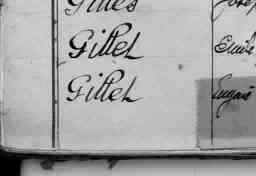 Gilles Josep
Gillet Emile
Gillet Eugène